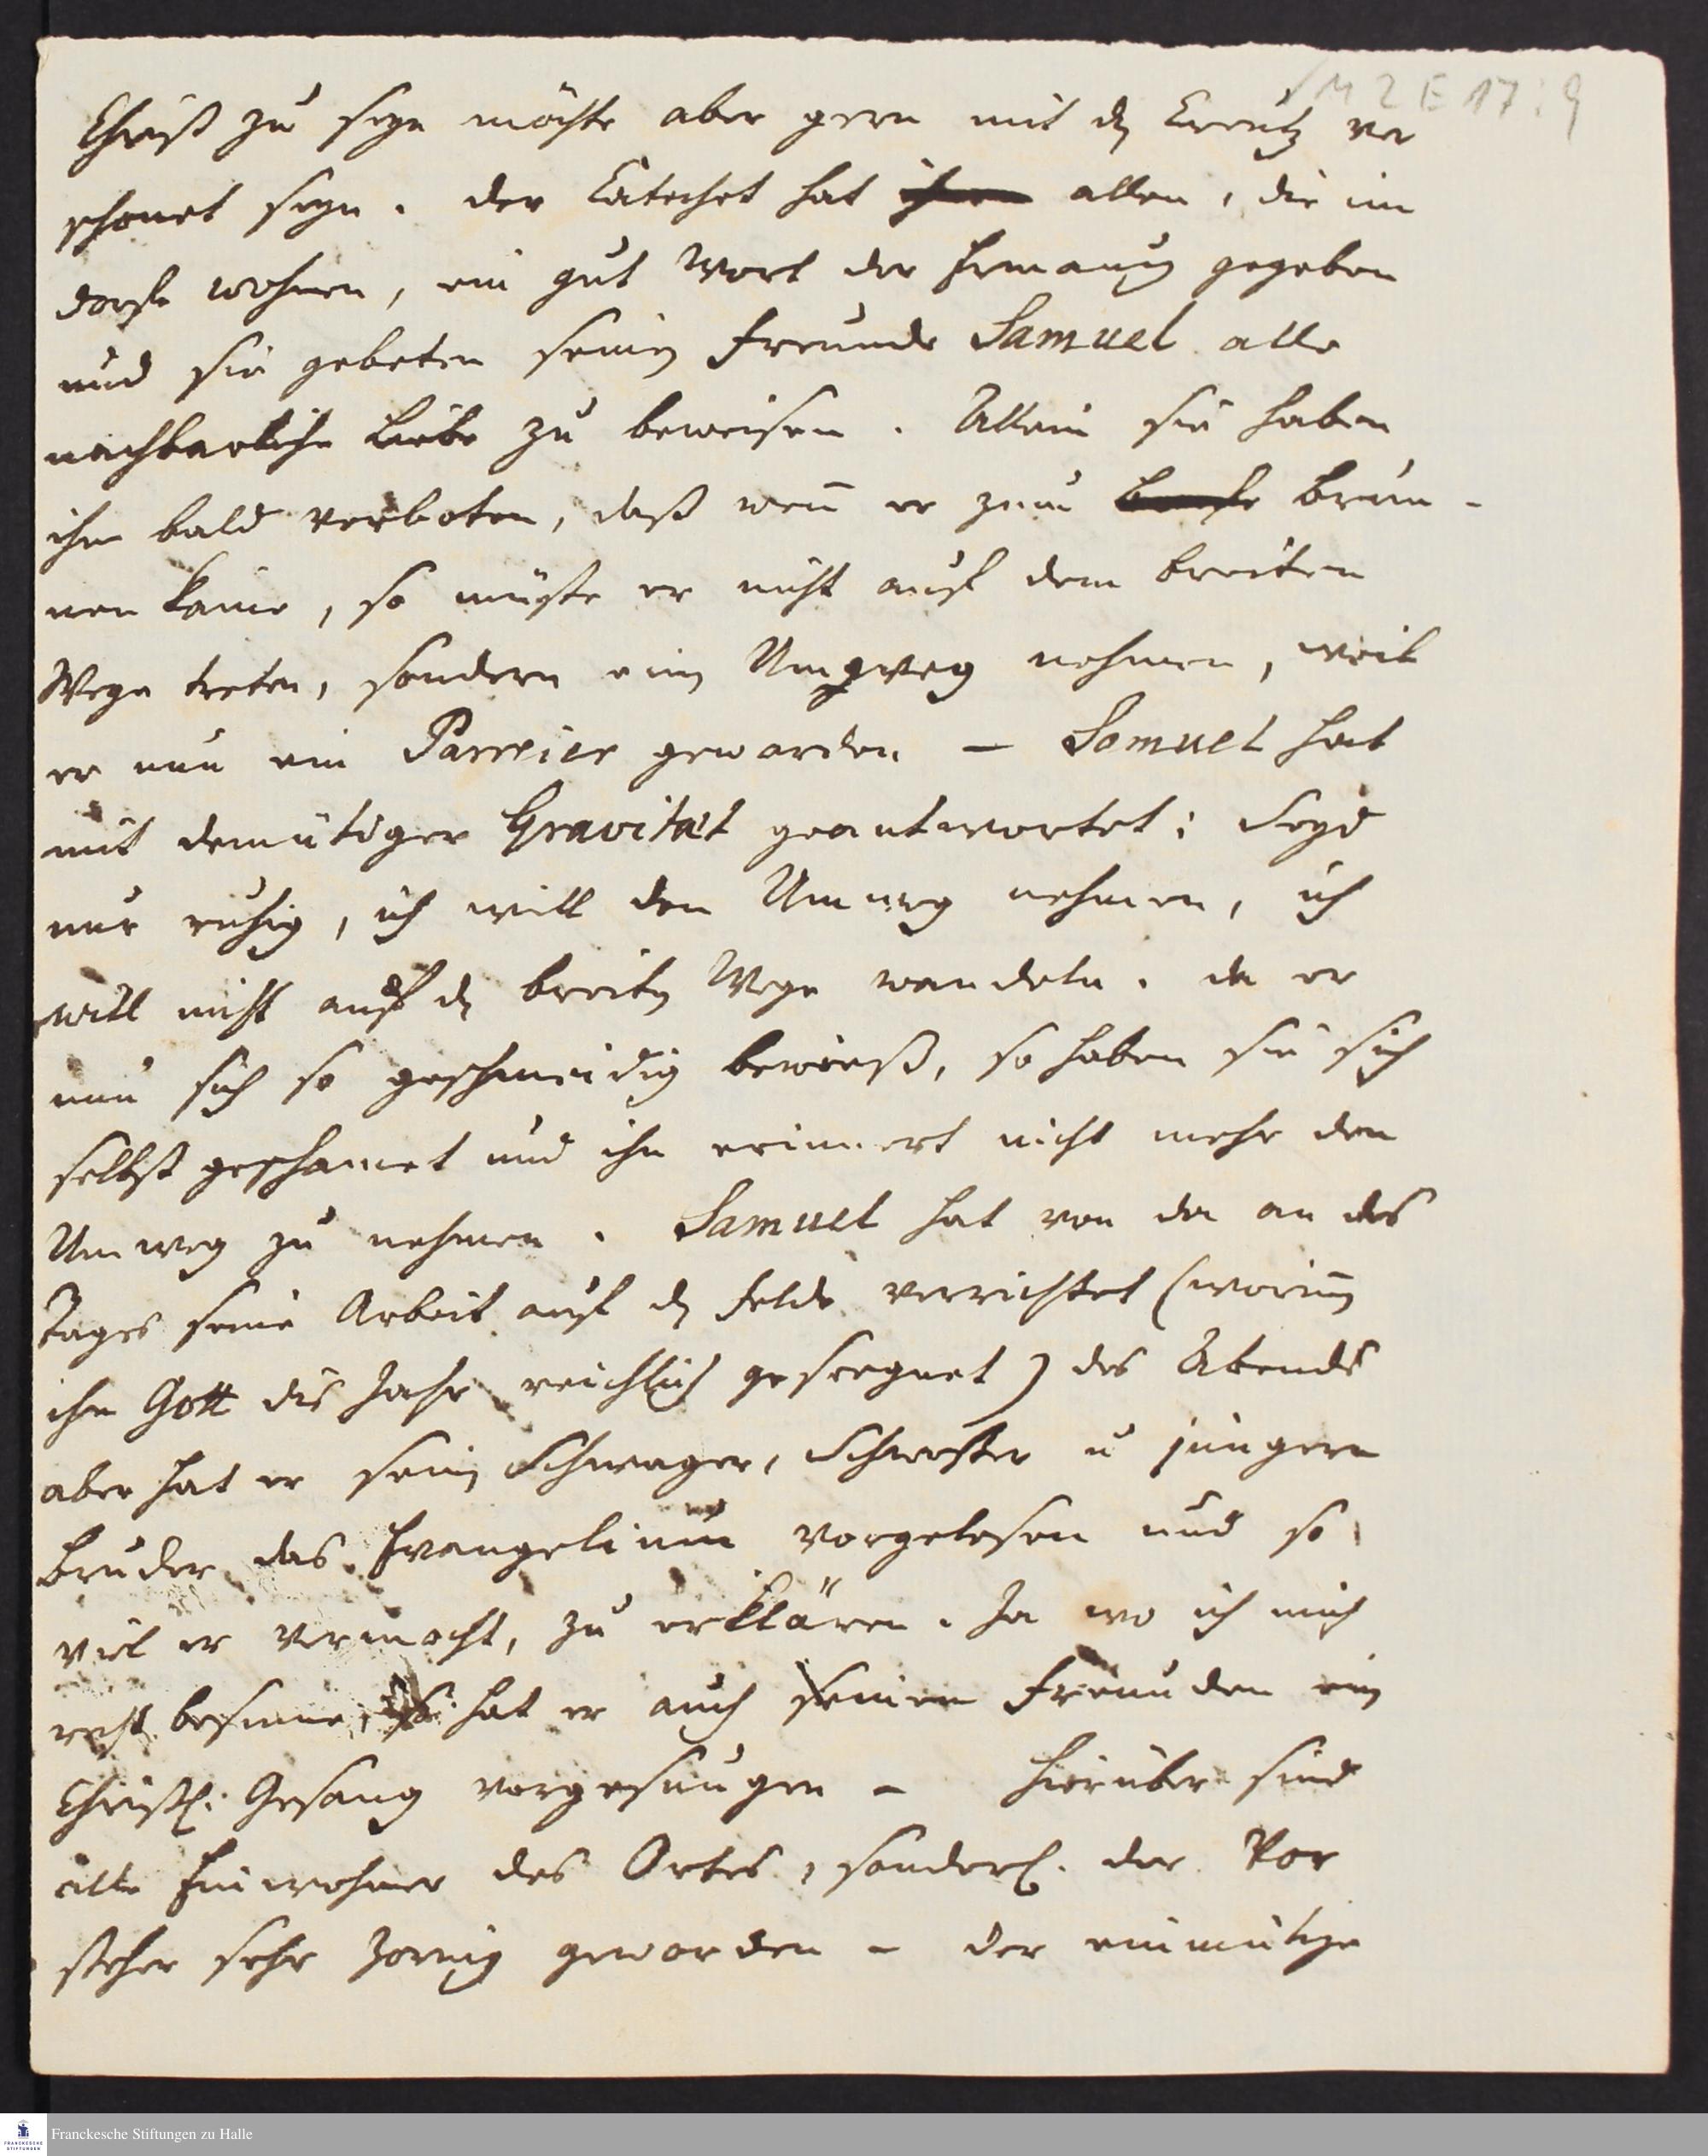 M 2 E 17 : 9
Christ zu seyn möchte aber gern mit dn Creutz ver
schonet seyn. der Catechet hat ihnen allen, die im
dorfe wohnen, ein gut Wort der Ermanung gegeben
und sie gebeten seinen Freunde Samuel alle
nachbarliche Liebe zu beweisen. Allein sie haben
ihm bald verboten, daß wen̄ er zum Brun-
nen käme, so müste er nicht auf dem breiten
Wege treten, sondern einen Umweg nehmen, weil
er nun ein Parreier geworden – Samuel hat
mit demütiger Gravitæt geantwortet: Seyd
nur ruhig, ich will den Umweg nehmen, ich
will nicht auf dn breiten Wege wandeln. da er
nun sich so geschmeidig bewieß, so haben sie sich
selbst geschämet und ihn erinnert nicht mehr den
Umweg zu nehmen. Samuel hat von da an des
Tages seine Arbeit auf dn Felde verrichtet (worin̄en
ihn Gott dis Jahr reichlich geseegnet) des Abends
aber hat er seinen Schwager, Schwester u jüngern
Bruder das Evangelium vorgelesen und so
viel er vermocht, zu erklären. Ja wo ich mich
recht besinne, so hat er auch seinen Freunden ein
Christl. Gesang vorgesungen – hierüber sind
alle Einwohner des Ortes, sonderl. der Vor
steher sehr zornig geworden – der einmütige
Franckesche Stiftungen zu Halle